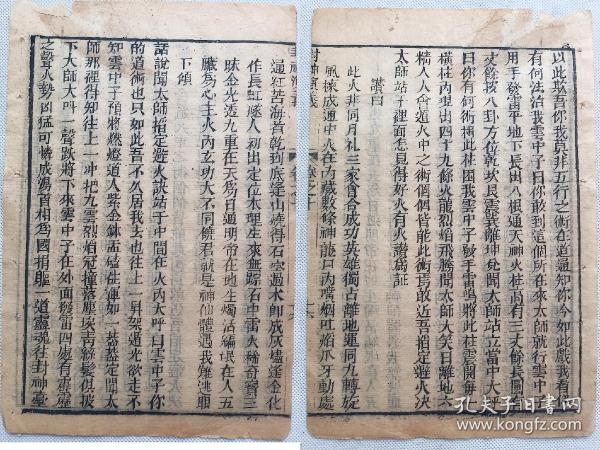 以此欺吾你我莫非五行之術在道通知你今如此戲我有
有何法治我雲中子曰你敢到這個所在來太師就行雲中子
用手發雷平地下長出八根通天神火柱高有三丈餘長圓有
丈餘按八卦方位乾坎艮震巽離坤兌聞太師站立當中大呼
曰你有何術捆此柱困我雲中子發手雷鳴將此柱震開每
根柱內現出四十九條火龍烈焰飛騰聞太師大笑曰離地之
精人人會遁火中之術個個皆能此術焉敢近吾掐定避火訣
太師站于裡面怎見得好火有火讚為証
讚曰
此火非同凡灶三家會合成功英雄獨占離地運同九轉旋
風煉成通中火在內藏數條神龍口內嘴烟吐焰爪牙動處
封神演義
卷之十
通紅苦海煮乾到底逢山燒得石空遇木即成灰燼逢金化
作長虹燧人初出定位木裡生來無踪石中雷火稀奇寶三
昧金光透九重在天為日通明帝在地生煙活編氓在人五
臟為心主火內玄功大不同饒君就是神仙體遇我難逃眼
下傾
話說聞太師掐定避火訣站于中間在火內大呼曰雲中子你
的道術也只如此吾不久居我去也往上一昇架遁光欲走不
知雲中子預將燃燈道人紫金鉢盂磕住渾如一蓋蓋定聞太
師那裡得知往上一冲把九雲烈焰冠撞落塵埃青絲髮俱披
下太師大叫一聲跌將下來雲中子在外面發雷四處有霹靂
之聲火勢凶猛可憐成湯首相為國捐軀一道靈魂往封神臺
孔夫子旧书网
book.kongfz.com